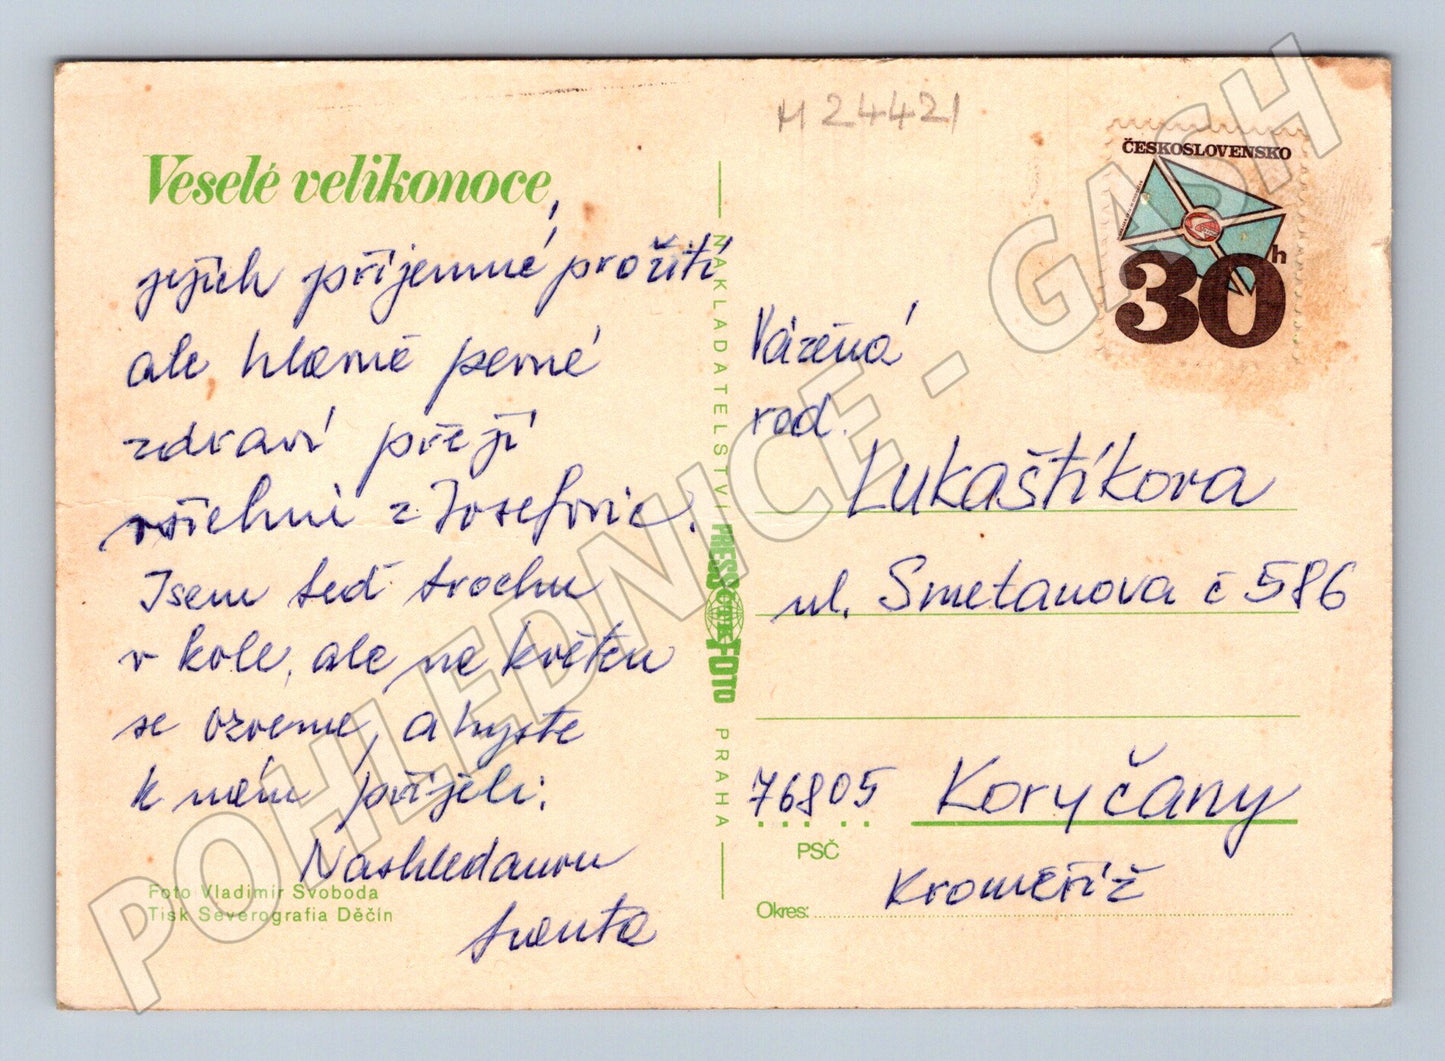 M 24421
ČESKOSLOVENSKO
30 h
Veselé velikonoce,
jejich příjemné prožití
ale hlavně pevné
zdraví přejí
všichni z Josefovic.
Jsem teď trochu
v kole, ale na květen
se ozveme, abyste
k nám přijeli.
Nashledanou
Foto Vladimír Svoboda
Tisk Severografia Děčín
NAKLADATELSTVÍ PRESSFOTO PRAHA
Vážená
rod.
Lukaštíkova
ul. Smetanova č 586
76805 Koryčany
PSČ
Kroměříž
Okres:
POHLEDNICE - GASH